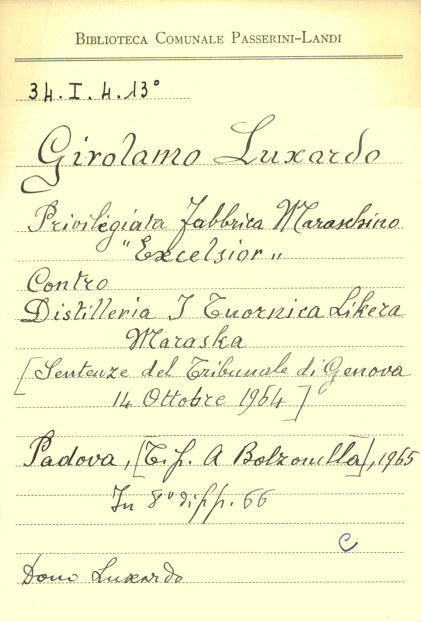 BIBLIOTECA COMUNALE PASSERINI-LANDI
34. I. 4. 13°
Girolamo Luxardo
Privilegiata Fabbrica Maraschino
"Excelsior"
Contro
Distilleria I Tvornica Likera
Maraska
[Sentenze del Tribunale di Genova
14 Ottobre 1964]
Padova, [Tip. A Bolzonella], 1965
In 8° di pp. 66
C
Dono Luxardo